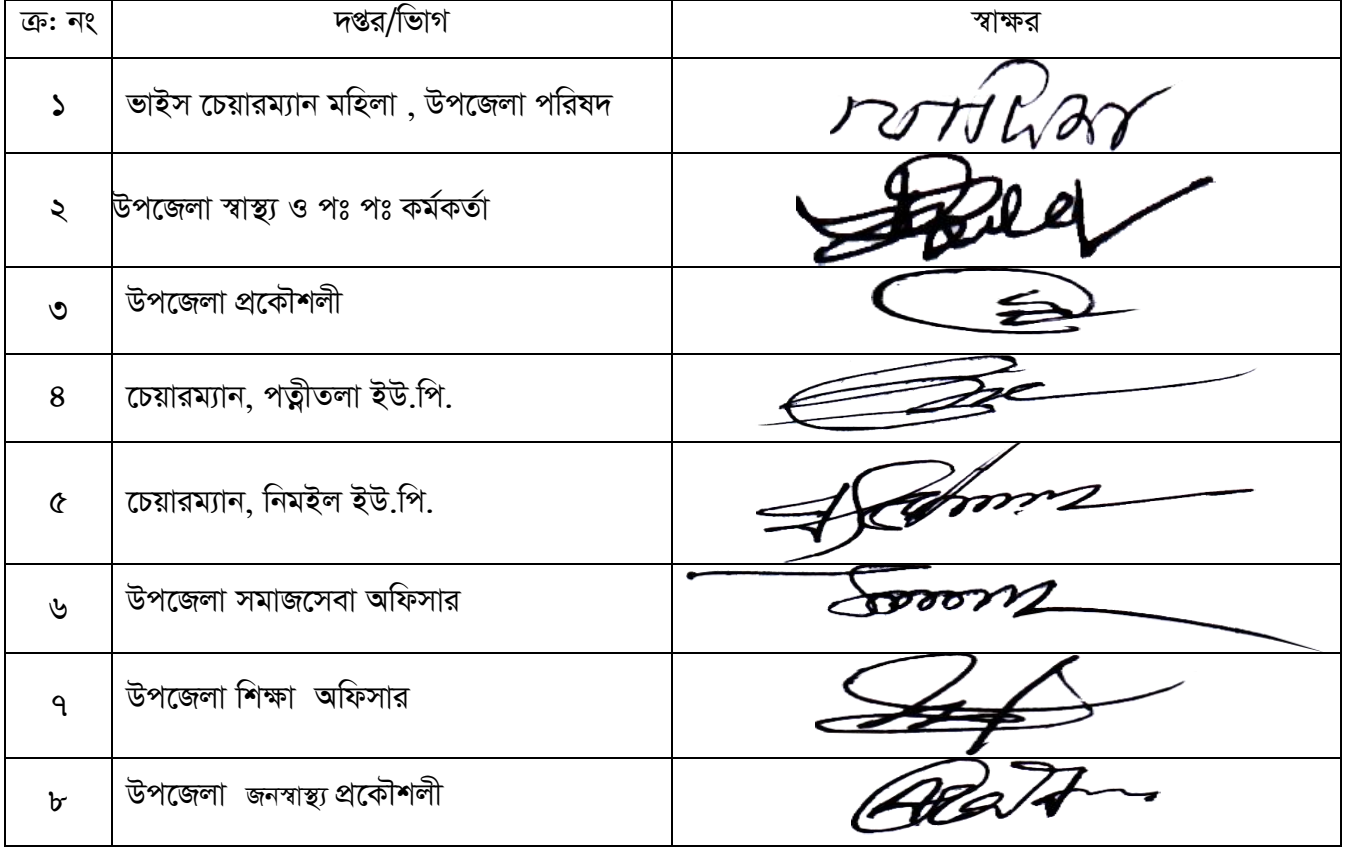 ক্র: নং দপ্তর/ভিাগ স্বাক্ষর
১ ভাইস চেয়ারম্যান মহিলা , উপজেলা পরিষদ
২ উপজেলা স্বাস্থ্য ও পঃ পঃ কর্মকর্তা
৩ উপজেলা প্রকৌশলী
৪ চেয়ারম্যান, পত্নীতলা ইউ.পি.
৫ চেয়ারম্যান, নিমইল ইউ.পি.
৬ উপজেলা সমাজসেবা অফিসার
৭ উপজেলা শিক্ষা অফিসার
৮ উপজেলা জনস্বাস্থ্য প্রকৌশলী